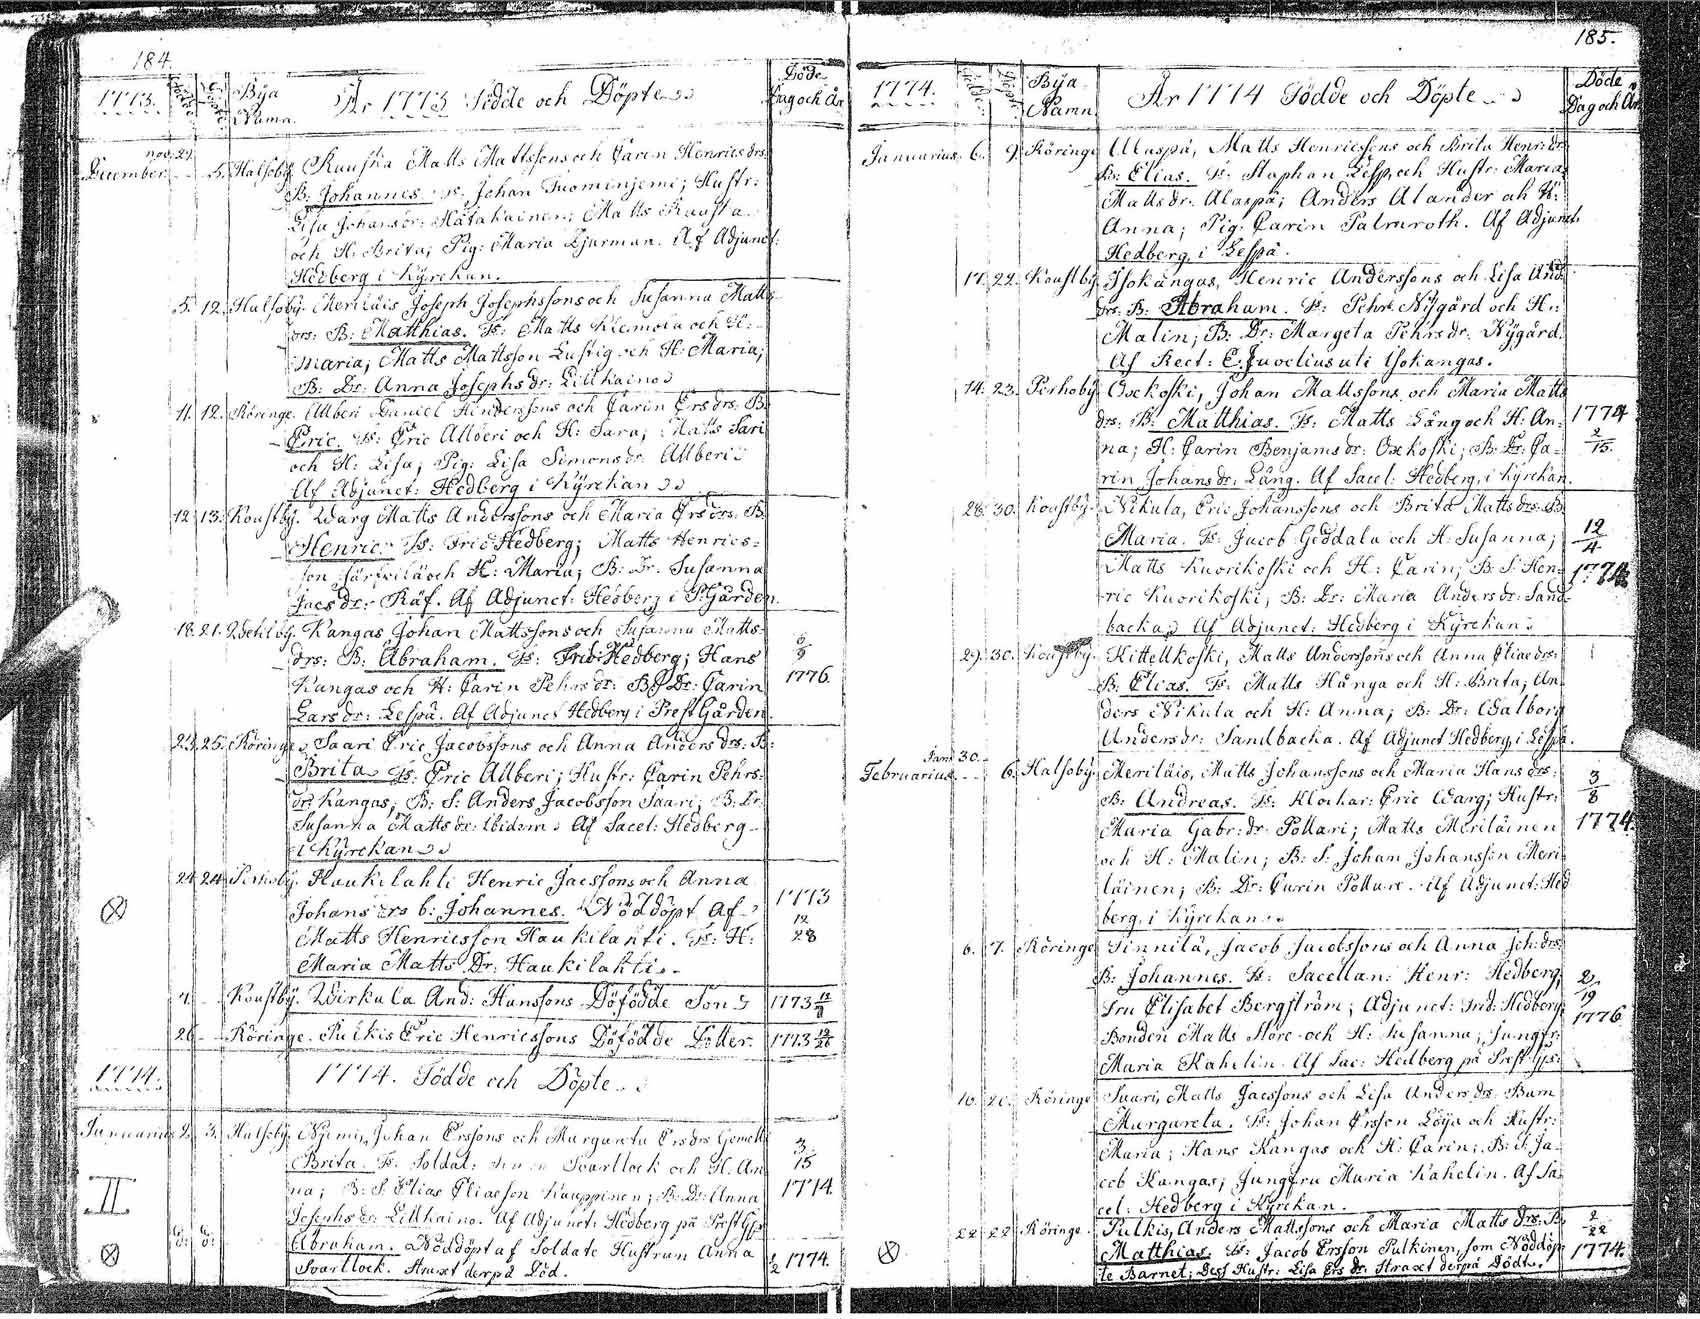 184.
1773.
Bÿa Namn.
År 1773 Födde och Döpte
Döde Dag och År
nov. 29.
December 5. Halsobÿ. Ruuska Matts Mattssons och Carin Henrics drs
B: Johannes. Fs: Johan Tuominjemi; Hustr:
Lisa Johans dr: Hatakainen; Matts Ruuska
och H: Brita; Pig: Maria Djurman. Af Adjunct:
Hedberg i Kÿrckan.
5. 12. Halsobÿ. Meriläis Joseph Josephssons och Susanna Matts
drs: B: Matthias. Fs: Matts Klemola och H:
Maria; Matts Mattsson Lustig och H: Maria;
B: Dr: Anna Josephs dr: Lillkaino
11. 12. Röringe. Allberi Daniel Hinderssons och Carin Ersdrs: B:
Eric. Fs: Eric Allberi och H: Sara; Matts Sari
och H: Lisa; Pig: Lisa Simons dr Allberi
Af Adjunct: Hedberg i Kÿrckan
12. 13. Koustbÿ. Warg Matts Anderssons och Maria Ers drs: B
Henric. Fs: Fric Hedberg; Matts Henrics=
son Järfvilä och H: Maria; B: Dr. Susanna
Jacs dr: Räf. Af Adjunct: Hedberg i P:Gården.
18. 21. Wetilbÿ. Kangas Johan Mattssons och Susanna Matts
drs: B: Abraham. Fs: Frid: Hedberg; Hans
6/9 1776.
Kangas och H: Carin Pehrs dr: B: Dr: Carin
Lars dr: Lespä. Af Adjunct Hedberg i Prest Gården.
23. 25. Röringe. Saari Eric Jacobssons och Anna Anders drs: B:
Brita. Fs: Eric Allberi; Hustr: Carin Pehrs:
dr: Kangas; B: S: Anders Jacobsson Saari; B: Dr:
Susanna Matts dr: Ibidem. Af Sacel: Hedberg
i Kÿrckan
24 24 Perhobÿ. Haukilahti Henric Jacssons och Anna
Johans drs b: Johannes. Nöddöpt Af
1773 12/28
Matts Henricsson Haukilahti. Fs: H:
Maria Matts Dr: Haukilahti.
Koustbÿ. Wirkula And: Hanssons Döfödde Son
1773
26. Röringe. Pulkis Eric Henricssons Döfödde Dotter.
1773 12/26
1774.
1774. Födde och Döpte
Januarius 2. 3. Halsobÿ. Niemi, Johan Erssons och Margareta Ers drs Gemell
Brita. Fs: Soldat: Svartlock och H: An
3/15 1774.
na; B: S: Elias Eliasson Kauppinen; B: Dr: Anna
Josephs dr: Lillkaino. Af Adjunct: Hedberg på Prest Gs:
II
d: d:
Abraham. Nöddöpt af Soldate Hustrun Anna
Svartlock. Straxt derpå Död.
1774.
185.
1774.
Födde Döpte
Bÿa Namn
År 1774 Födde och Döpte
Döde Dag och År
Januarius. 6. 9. Röringe Alaspä, Matts Henricssons och Brita Henr: dr
B: Elias. Fs: Staphan Lespp och Hustr: Maria
Matts dr: Alaspä; Anders Alander och H:
Anna; Pig: Carin Palmroth. Af Adjunct
Hedberg i Lespä.
17. 22. Koustbÿ Isokangas, Henric Anderssons och Lisa And
drs: B: Abraham. Fs: Pehr Nÿgård och H:
Malin; B: Dr: Margeta Pehrs dr: Nÿgård.
Af Rect: E. Juvelius uti Isokangas.
14. 23. Perhobÿ Oxekoski, Johan Mattssons och Maria Matts
drs: B: Matthias. Fs: Matts Lång och H: An-
1774 2/15.
na; H: Carin Benjams dr: Oxekoski; B: Dr: Ca-
rin Johans dr: Lång. Af Sacel: Hedberg, i Kÿrckan.
28. 30. Koustbÿ. Nikula, Eric Johanssons och Brita Matts drs: B
Maria. Fs: Jacob Geddala och H: Susanna;
12/4 1774
Matts Kuorikoski och H: Carin; B: S: Hen-
ric Kuorikoski; B: Dr: Maria Anders dr: Sand-
backa. Af Adjunct: Hedberg i Kÿrckan
29. 30. Koustbÿ. Kittelkoski, Matts Anderssons och Anna Eliae drs:
B: Elias. Fs: Matts Hånga och H: Brita; An-
ders Nikula och H: Anna; B: Dr: Walborg
Anders dr: Sandbacka. Af Adjunct Hedberg, i Lespä.
Janu 30.
Februarius 6. Halsobÿ Meriläis, Matts Johanssons och Maria Hans drs:
B: Andreas. Fs: Klockar: Eric Warg; Hustr:
3/8 1774.
Maria Gabr: dr: Pollari; Matts Meriläinen
och H: Malin; B: S: Johan Johansson Meri-
läinen; B: Dr: Carin Pollare. Af Adjunct: Hed
berg i Kÿrckan
6. 7. Röringe Sinnilä, Jacob Jacobssons och Anna Joh: drs
B: Johannes. Fs: Sacellan: Henr: Hedberg,
2/19 1776
Fru Elisabet Bergström; Adjunct: Frid: Hedberg
Bonden Matts Store och H: Susanna; Jungfr:
Maria Kahelin. Af Sac: Hedberg på Prest Gs:
10. 20. Röringe Saari, Matts Jacssons och Lisa Anders drs Barn
Margareta. Fs: Johan Ersson Löÿa och Hustr:
Maria; Hans Kangas och H: Carin; B: S: Ja-
cob Kangas; Jungfru Maria Kahelin. Af Sa
cel: Hedberg i Kÿrckan.
22 22 Röringe. Pulkis, Anders Mattssons och Maria Matts drs: B:
Matthias. Fs: Jacob Ersson Pulkinen, som Nöddöp-
te Barnet; Dess Hustr: Lisa Ers dr: Straxt derpå Dödt.
2/22 1774.